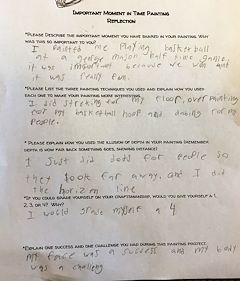 Important Moment in Time Painting
Reflection
*Please describe the important moment you have shared in your painting. Why
was this so important to you?
I Painted me Playing basketball
at a game major half time game.
it was important because we won and
it was really fun.
*Please list the three painting techniques you used and explain how you used
each one to make your painting more interesting.
I did streking for my floor, over Painting
for my basketball hoop and, dabing for my
People.
* Please explain how you used the illusion of depth in your painting (remember,
depth is how far back something goes, shows distance)
I Just did dots for People so
they look far away. and I did
the horizen line
*If you could grade yourself on your craftsmanship, would you give yourself a 1,
2, 3, or 4? Why?
I would grade myself a 4
*Explain one success and one challenge you had during this painting project.
my face was a success and my body
was a challeng